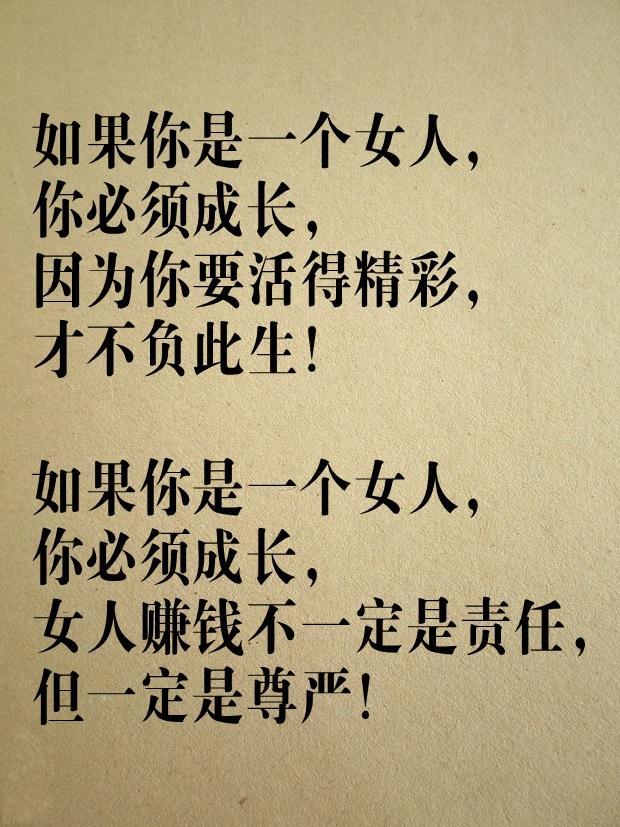 如果你是一个女人，
你必须成长，
因为你要活得精彩，
才不负此生！
如果你是一个女人，
你必须成长，
女人赚钱不一定是责任，
但一定是尊严！